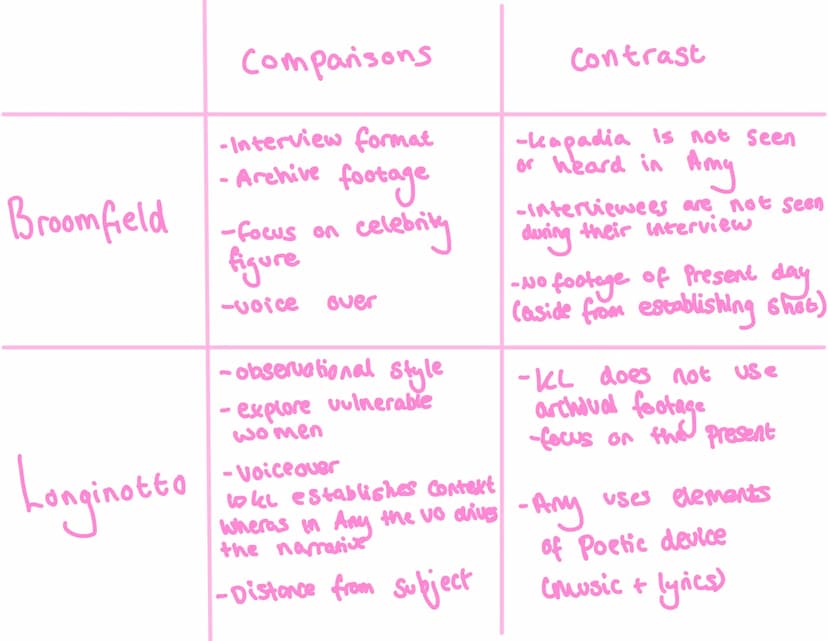 Comparisons
Contrast
Broomfield
-Interview format
- Archive footage
-focus on celebrity
figure
-voice over
-Kapadia is not seen
or heard in Amy
-Interviewees are not seen
during their interview
-No footage of Present day
(aside from establishing shot)
Longinotto
-observational style
- explore vulnerable
women
-Voiceover
↳KL establishes context
wheras in Amy the VO drives
the narrative
-Distance from subject
- KL does not use
archival footage
-focus on the present
-Amy uses elements
of Poetic device
(music + lyrics)